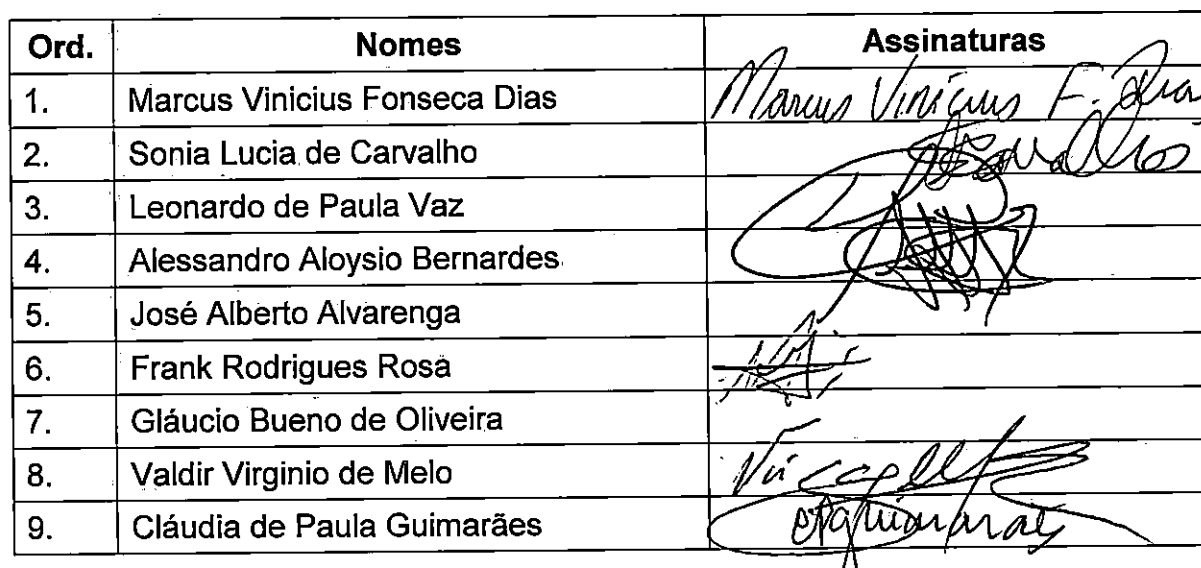 Ord. Nomes Assinaturas
1. Marcus Vinicius Fonseca Dias Marcus Vinicius F. Dias
2. Sonia Lucia de Carvalho
3. Leonardo de Paula Vaz
4. Alessandro Aloysio Bernardes
5. José Alberto Alvarenga
6. Frank Rodrigues Rosa
7. Gláucio Bueno de Oliveira
8. Valdir Virginio de Melo
9. Cláudia de Paula Guimarães